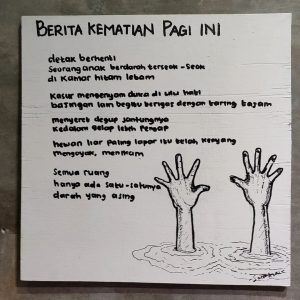 BERITA KEMATIAN PAGI INI
detak berhenti
Seorang anak berdarah terseok-seok
di kamar hitam lebam
Kasur mengenyam duka di ulu hati
bajingan lain begitu beringas dengan taring tajam
menyeret degup jantungnya
kedalam gelap lebih pengap
hewan liar paling lapar itu telah kenyang
mengoyak, menikam
Semua ruang
hanya ada satu-satunya
darah yang asing